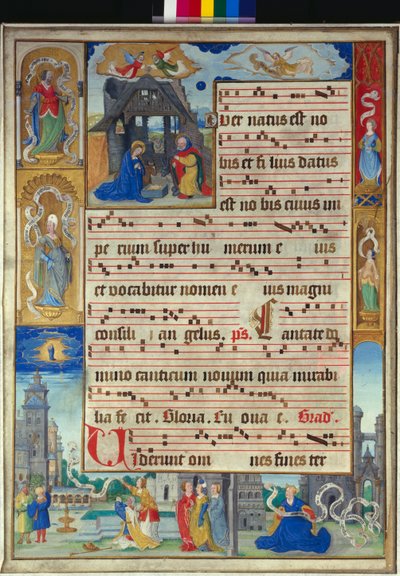 Puer natus est no
bis et fi lius datus
est no bis cuius im
pe rium super hu merum e ius
et vocabitur nomen e ius magni
consili j an gelus. ps. Cantate do
mino canticum nouum quia mirabi
lia fe cit. Gloria. Eu oua e. Grad̃.
Uiderunt om nes fines ter